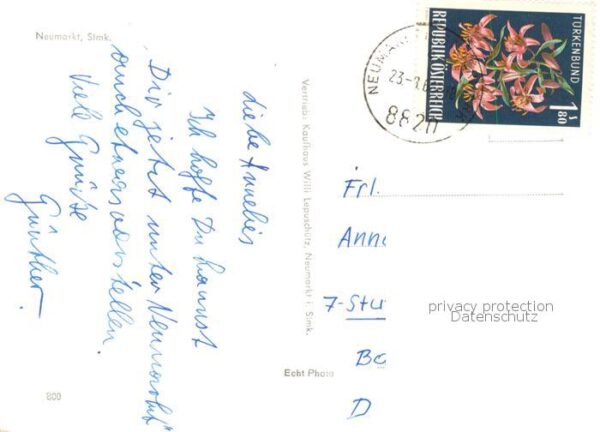 Neumarkt, Stmk.
Liebe Annelies
Ich hoffe Du kannst
Dir jetzt unter "Neumarkt"
auch etwas vorstellen.
Viele Grüße
Günther.
800
Vertrieb: Kaufhaus Willi Lepuschütz, Neumarkt i. Stmk.
Echt Photo
NEUMARKT
23.
8820
REPUBLIK ÖSTERREICH
TÜRKENBUND
1.80 S
Frl.
Ann
7-Stu
B
D
privacy protection
Datenschutz